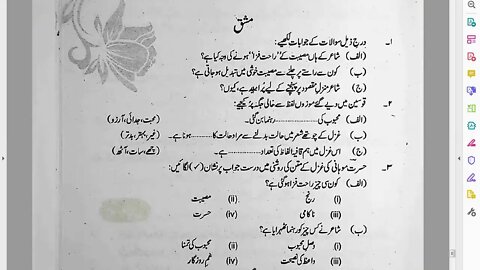 مشق
۱۔ درج ذیل سوالات کے جوابات لکھیے:
(الف) شاعر کے ہاں مصیبت کے "راحت فزا" ہونے کی وجہ کیا ہے؟
(ب) کون سے راستے پر چلنے سے مصیبت خوشی میں تبدیل ہو جاتی ہے؟
(ج) شاعر منزلِ مقصود پر پہنچنے کے لیے پُرامید ہے، کیوں؟
۲۔ قوسین میں دیے گئے موزوں لفظ سے خالی جگہ پُر کیجیے:
(الف) محبوب کی ............ رہنما بن گئی۔ (محبت، جدائی، آرزو)
(ب) غزل کے چوتھے شعر میں حالت بدلنے سے مراد حالت کا ............ ہونا ہے۔ (غیر، بہتر، بدتر)
(ج) اس غزل میں ہم قافیہ الفاظ کی تعداد ............ ہے۔ (چھے، سات، آٹھ)
۳۔ حسرت موہانی کی غزل کے متن کی روشنی میں درست جواب پر نشان (✓) لگائیں:
(الف) کون سی چیز راحت فزا ہو گئی ہے؟
(i) رنج (ii) مصیبت
(iii) ناکامی (iv) حسرت
(ب) شاعر نے کس چیز کو رہنما ٹھہرایا ہے؟
(i) وصلِ محبوب (ii) محبوب کی تمنا
(iii) واعظ کی نصیحت (iv) غمِ روزگار